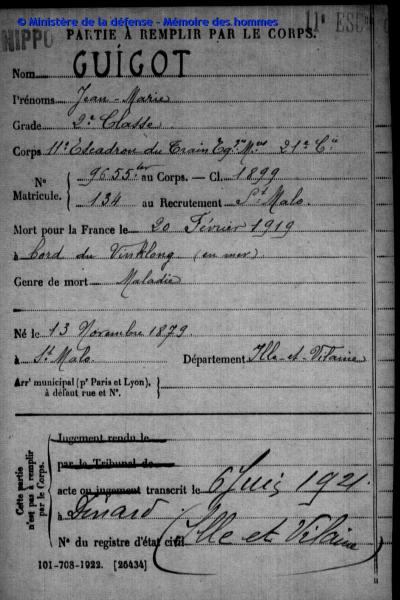 © Ministère de la défense - Mémoire des hommes
HIPPO 11e ESC
PARTIE À REMPLIR PAR LE CORPS.
Nom GUIGOT
Prénoms Jean-Marie
Grade 2e Classe
Corps 11e Escadron du Train 21e Cie
No Matricule. 9655 au Corps. — Cl. 1899
134 au Recrutement St Malo
Mort pour la France le 20 Février 1919
à bord du Vinhlong (en mer)
Genre de mort Maladie
Né le 13 Novembre 1879
à St Malo Département Ille-et-Vilaine
Arrt municipal (pr Paris et Lyon), à défaut rue et No.
Cette partie n'est pas à remplir par le Corps.
Jugement rendu le
par le Tribunal de
acte ou jugement transcrit le 6 Juin 1921.
à Dinard
(Ille et Vilaine)
No du registre d'état civil
101-708-1922. [26434]